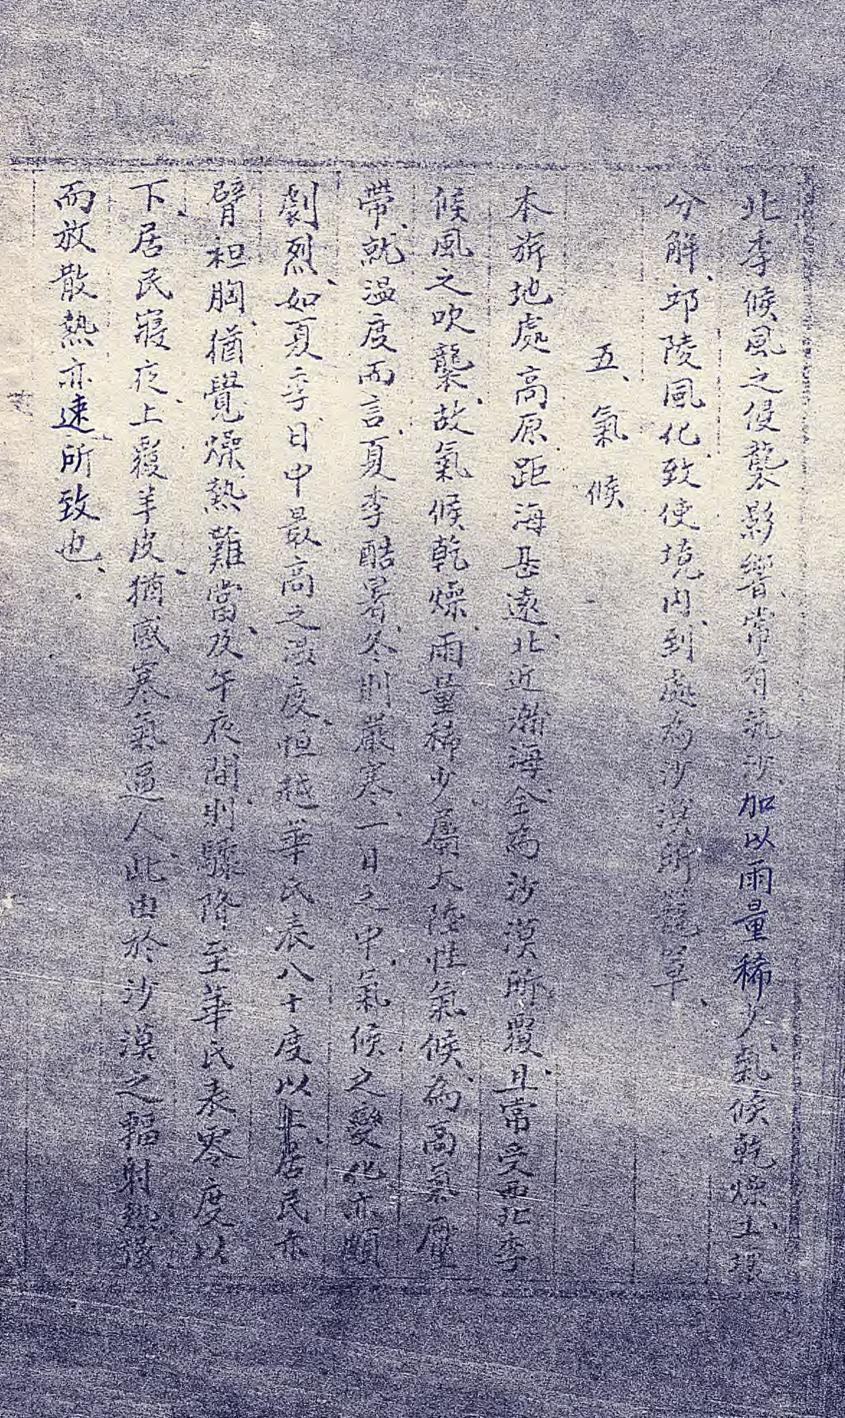 北季候風之侵襲影響、常有流沙、加以雨量稀少、氣候乾燥、土壤
分解、邱陵風化、致使境內到處為沙漠所籠罩、
五、氣候
本旂地處高原、距海悬遠、北近瀚海、全為沙漠所覆、且常受西北季
候風之吹襲、故氣候乾燥、雨量稀少、屬大陸性氣候、為高氣壓
帶、就溫度而言、夏季酷暑、冬則嚴寒、一日之中、氣候之變化亦頗
劇烈、如夏季、日中最高之溫度、恒越華氏表八十度以上、居民亦
臂袒胸、猶覺燥熱難當、及午夜間、則驟降至華氏表零度以
下、居民寢夜、上覆羊皮、猶感寒氣逼人、此由於沙漠之輻射熱強
而放散熱亦速所致也、